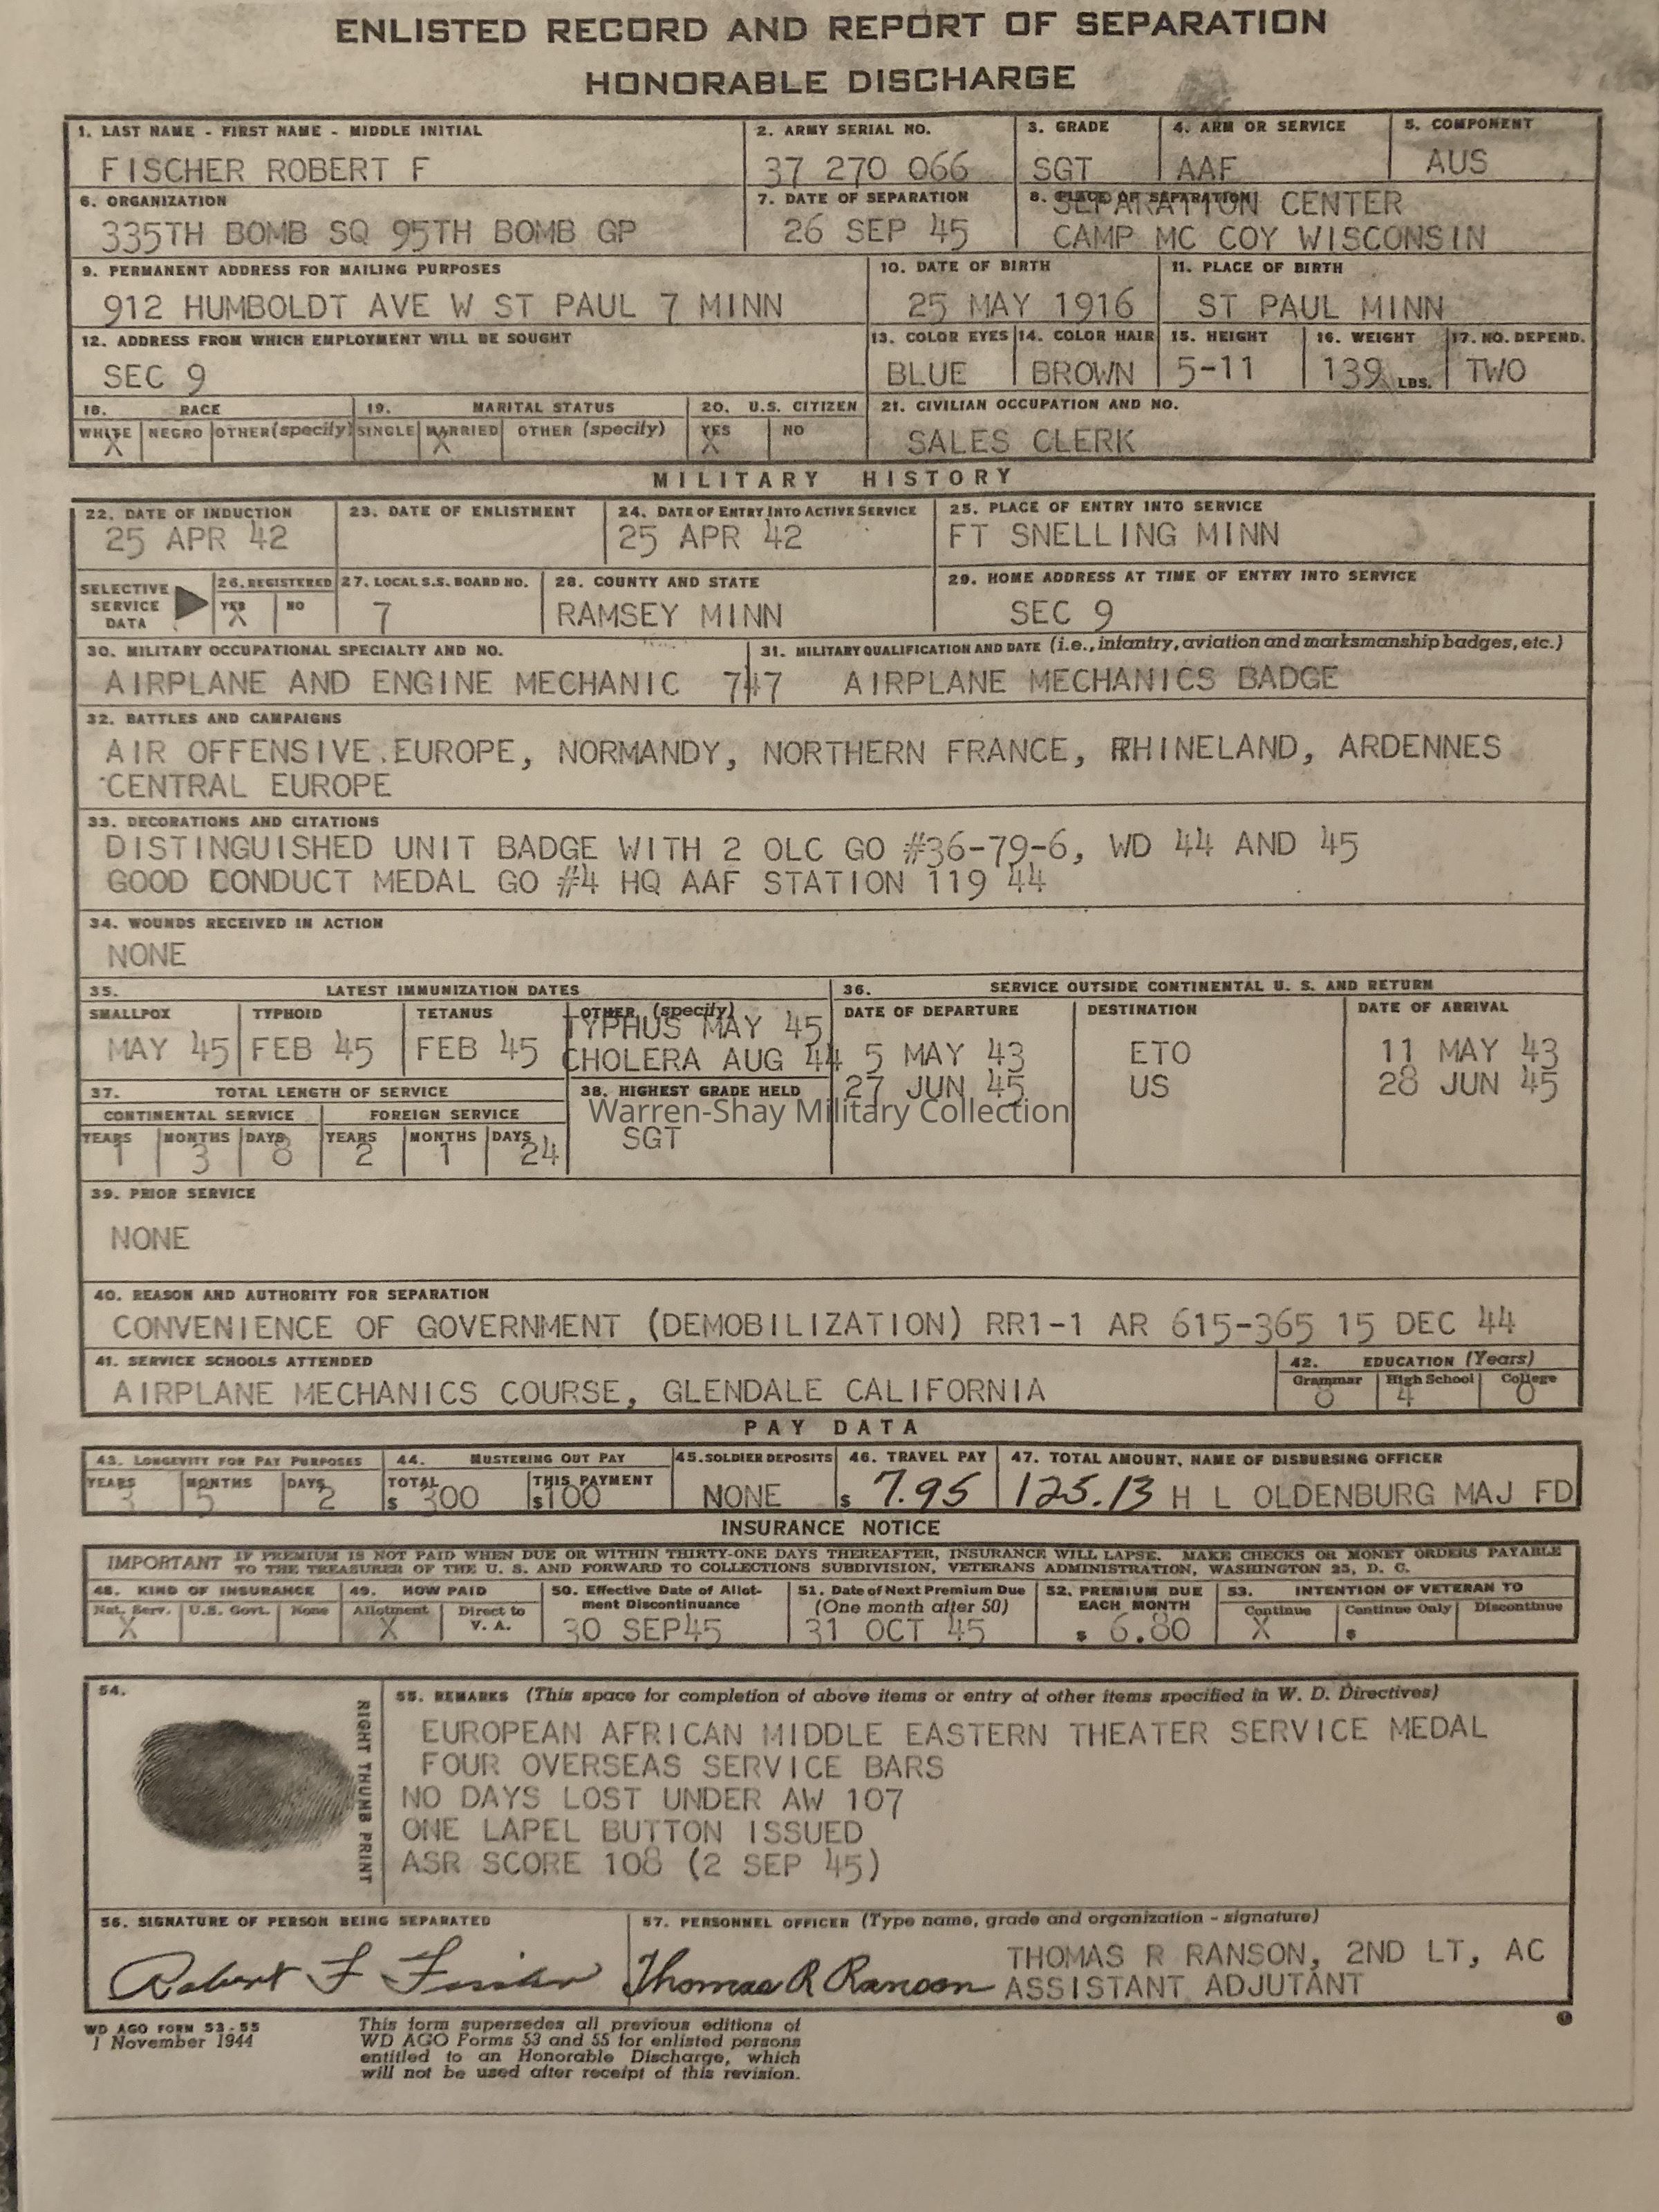 ENLISTED RECORD AND REPORT OF SEPARATION
HONORABLE DISCHARGE
1. LAST NAME - FIRST NAME - MIDDLE INITIAL
FISCHER ROBERT F
2. ARMY SERIAL NO.
37 270 066
3. GRADE
SGT
4. ARM OR SERVICE
AAF
5. COMPONENT
AUS
6. ORGANIZATION
335TH BOMB SQ 95TH BOMB GP
7. DATE OF SEPARATION
26 SEP 45
8. PLACE OF SEPARATION
SEPARATION CENTER
CAMP MC COY WISCONSIN
9. PERMANENT ADDRESS FOR MAILING PURPOSES
912 HUMBOLDT AVE W ST PAUL 7 MINN
10. DATE OF BIRTH
25 MAY 1916
11. PLACE OF BIRTH
ST PAUL MINN
12. ADDRESS FROM WHICH EMPLOYMENT WILL BE SOUGHT
SEC 9
13. COLOR EYES
BLUE
14. COLOR HAIR
BROWN
15. HEIGHT
5-11
16. WEIGHT
139 LBS.
17. NO. DEPEND.
TWO
18. RACE
WHITE NEGRO OTHER (specify)
X
19. MARITAL STATUS
SINGLE MARRIED OTHER (specify)
X
20. U.S. CITIZEN
YES NO
X
21. CIVILIAN OCCUPATION AND NO.
SALES CLERK
MILITARY HISTORY
22. DATE OF INDUCTION
25 APR 42
23. DATE OF ENLISTMENT
24. DATE OF ENTRY INTO ACTIVE SERVICE
25 APR 42
25. PLACE OF ENTRY INTO SERVICE
FT SNELLING MINN
SELECTIVE
SERVICE
DATA
26. REGISTERED
YES NO
X
27. LOCAL S.S. BOARD NO.
7
28. COUNTY AND STATE
RAMSEY MINN
29. HOME ADDRESS AT TIME OF ENTRY INTO SERVICE
SEC 9
30. MILITARY OCCUPATIONAL SPECIALTY AND NO.
AIRPLANE AND ENGINE MECHANIC 747
31. MILITARY QUALIFICATION AND DATE (i.e., infantry, aviation and marksmanship badges, etc.)
AIRPLANE MECHANICS BADGE
32. BATTLES AND CAMPAIGNS
AIR OFFENSIVE.EUROPE, NORMANDY, NORTHERN FRANCE, RHINELAND, ARDENNES
CENTRAL EUROPE
33. DECORATIONS AND CITATIONS
DISTINGUISHED UNIT BADGE WITH 2 OLC GO #36-79-6, WD 44 AND 45
GOOD CONDUCT MEDAL GO #4 HQ AAF STATION 119 44
34. WOUNDS RECEIVED IN ACTION
NONE
35. LATEST IMMUNIZATION DATES
SMALLPOX
MAY 45
TYPHOID
FEB 45
TETANUS
FEB 45
OTHER (specify)
TYPHUS MAY 45
CHOLERA AUG 44
36. SERVICE OUTSIDE CONTINENTAL U. S. AND RETURN
DATE OF DEPARTURE DESTINATION DATE OF ARRIVAL
5 MAY 43 ETO 11 MAY 43
27 JUN 45 US 28 JUN 45
37. TOTAL LENGTH OF SERVICE
CONTINENTAL SERVICE FOREIGN SERVICE
YEARS MONTHS DAYS YEARS MONTHS DAYS
1 3 8 2 1 24
38. HIGHEST GRADE HELD
Warren-Shay Military Collection
SGT
39. PRIOR SERVICE
NONE
40. REASON AND AUTHORITY FOR SEPARATION
CONVENIENCE OF GOVERNMENT (DEMOBILIZATION) RR1-1 AR 615-365 15 DEC 44
41. SERVICE SCHOOLS ATTENDED
AIRPLANE MECHANICS COURSE, GLENDALE CALIFORNIA
42. EDUCATION (Years)
Grammar High School College
8 4 0
PAY DATA
43. LONGEVITY FOR PAY PURPOSES
YEARS MONTHS DAYS
3 5 2
44. MUSTERING OUT PAY
TOTAL THIS PAYMENT
$ 300 $100
45. SOLDIER DEPOSITS
NONE
46. TRAVEL PAY
$ 7.95
47. TOTAL AMOUNT, NAME OF DISBURSING OFFICER
125.13 H L OLDENBURG MAJ FD
INSURANCE NOTICE
IMPORTANT IF PREMIUM IS NOT PAID WHEN DUE OR WITHIN THIRTY-ONE DAYS THEREAFTER, INSURANCE WILL LAPSE. MAKE CHECKS OR MONEY ORDERS PAYABLE
TO THE TREASURER OF THE U. S. AND FORWARD TO COLLECTIONS SUBDIVISION, VETERANS ADMINISTRATION, WASHINGTON 25, D. C.
48. KIND OF INSURANCE
Nat. Serv. U.S. Govt. None
X
49. HOW PAID
Allotment Direct to
V. A.
X
50. Effective Date of Allot-
ment Discontinuance
30 SEP45
51. Date of Next Premium Due
(One month after 50)
31 OCT 45
52. PREMIUM DUE
EACH MONTH
$ 6.80
53. INTENTION OF VETERAN TO
Continue Continue Only Discontinue
X $
54.
RIGHT THUMB PRINT
55. REMARKS (This space for completion of above items or entry of other items specified in W. D. Directives)
EUROPEAN AFRICAN MIDDLE EASTERN THEATER SERVICE MEDAL
FOUR OVERSEAS SERVICE BARS
NO DAYS LOST UNDER AW 107
ONE LAPEL BUTTON ISSUED
ASR SCORE 108 (2 SEP 45)
56. SIGNATURE OF PERSON BEING SEPARATED
Robert F Fischer
57. PERSONNEL OFFICER (Type name, grade and organization - signature)
Thomas R Ranson
THOMAS R RANSON, 2ND LT, AC
ASSISTANT ADJUTANT
WD AGO FORM 53-55
1 November 1944
This form supersedes all previous editions of
WD AGO Forms 53 and 55 for enlisted persons
entitled to an Honorable Discharge, which
will not be used after receipt of this revision.